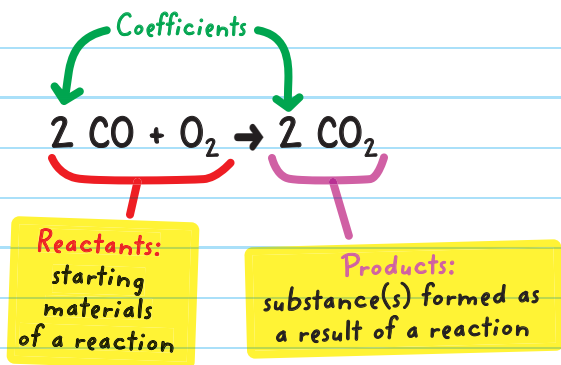 Coefficients
2 CO + O₂ → 2 CO₂
Reactants:
starting
materials
of a reaction
Products:
substance(s) formed as
a result of a reaction